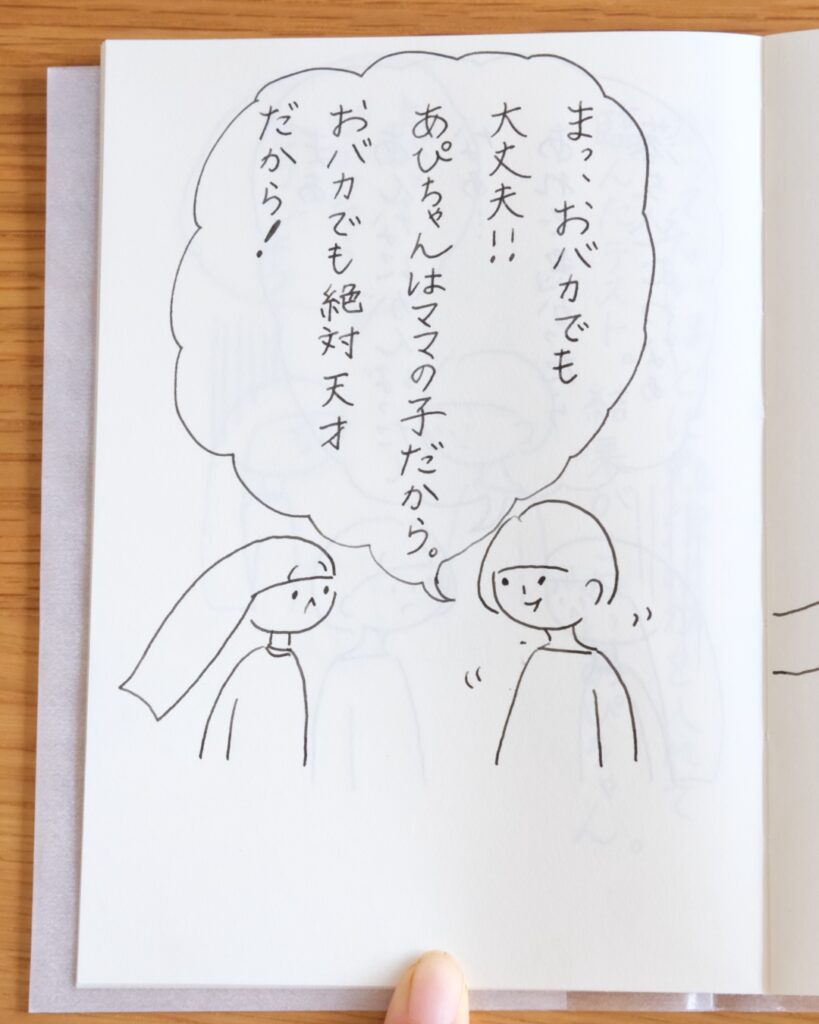 まっ、おバカでも
大丈夫!!
あぴちゃんはママの子だから。
おバカでも絶対天才
だから!